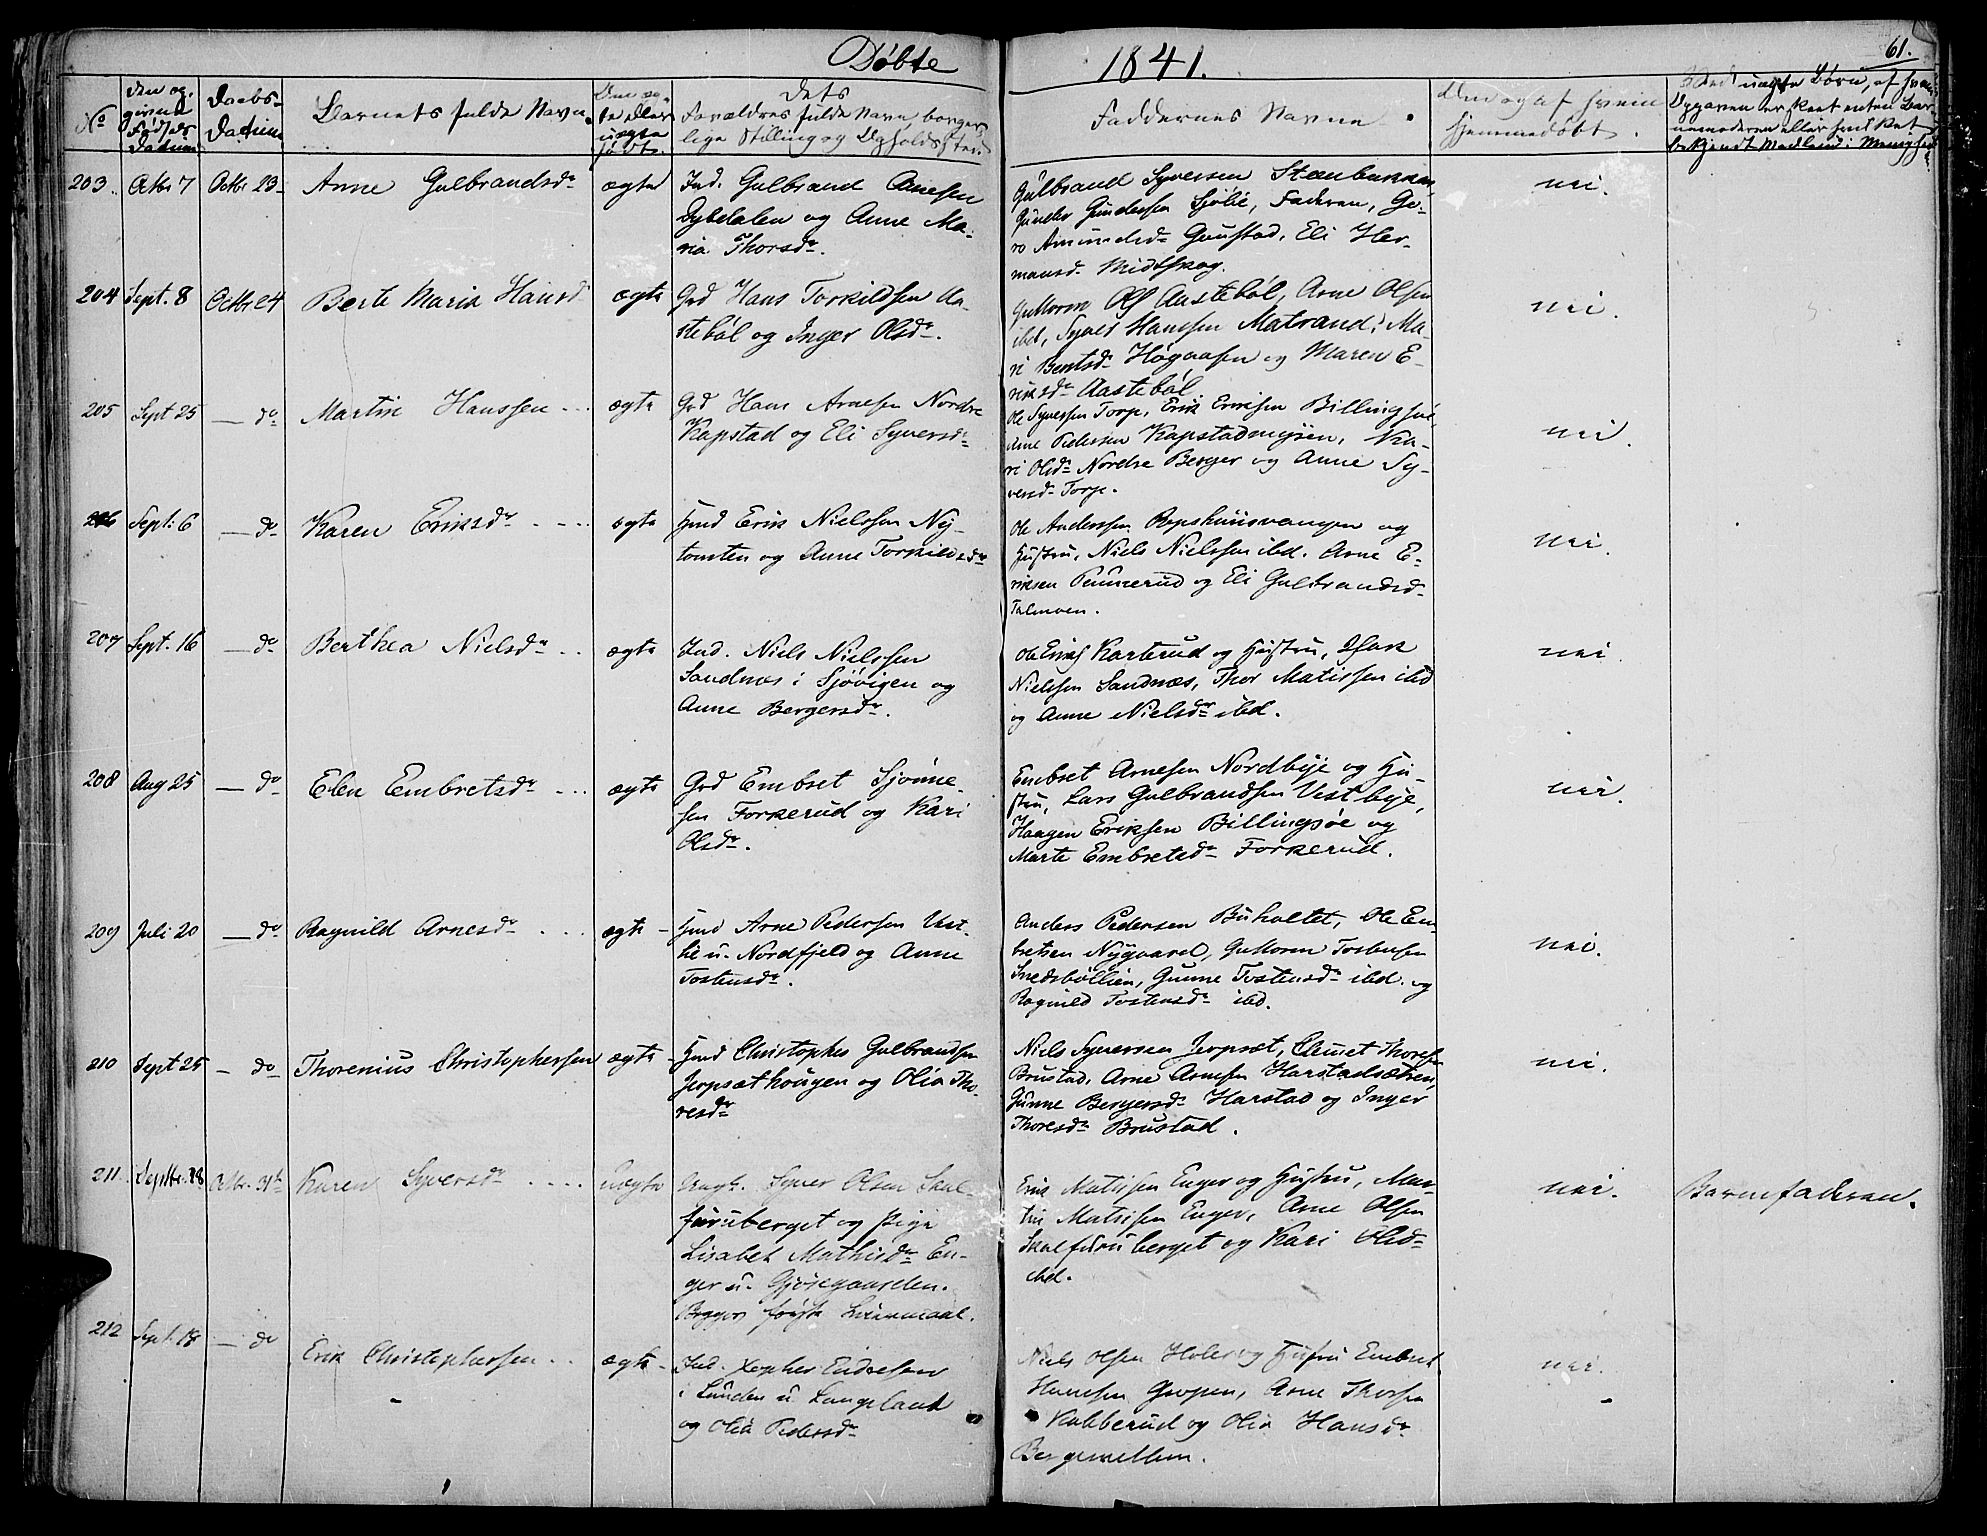 Døbte 1841. 61.
No
Den op-
givne
Fødsels
Datum
Daabs-
Datum
Barnets fulde Navn.
Den æg-
te eller
uægte
født.
Dets
Forældres fulde Navn borger-
lige Stilling og Opholdssted
Faddernes Navne.
Om og af hvem
hjemmedøbt.
Ved uægte Børn, af hvem
Opgaven er skeet enten Bar-
nemoderen eller
bekjendt Medlem i Menighed
203. Octbr 7 Octbr. 23- Anne Gulbrandsdr ægte
Ind. Gulbrand Arnesen
Dybedalen og Anne Ma-
ria Thorsdr.
Gulbrand Syversen Stenbækken,
Gunder Gundersen Sjölie, Faderen, Ge-
ro Amundsdr Gaustad, Eli Her-
mansdr Midtskog.
nei.
204 Sept. 8 Octbr 24 Berte Maria Hansd ægte
Grd Hans Torkildsen Aa-
stebøl og Inger Olsdr.
Guttorm Ols Aastebøl, Arne Olsen
ibd, Syver Hansen Matrand, Ma-
ri Berntsdr Høgaasen og Maren E-
riksdr Aastebøl
nei.
205 Sept 25 — do Martin Hanssen ... ægte
Grd Hans Arnesen Nordre
Kapstad og Eli Syversdr
Ole Syversen Torp, Erik Eriksen Billingsøe,
Arne Pedersen Kapstadmyren, Ka-
ri Olsdr Nordre Berger og Anne Sy-
versdr Torp.
nei.
206 Sept. 6 — do Karen Eriksdr .... ægte
Hmd Erik Nielssen Ny-
tomten og Anne Torkildsdr
Ole Anderssen Ropshuusvangen og
Hustru, Niels Nielssen ibd. Arne E-
riksen Pennerud og Eli Gulbrandsd-
Talmoen.
nei.
207 Sept. 16 — do Berthea Nielsdr .. ægte
Ind. Niels Nielssen
Sandnes i Sjøvigen og
Anne Bergersdr.
Ole Eriks Karterud og Hustru, Isak
Nielssen Sandnæs, Thor Matissen ibd
og Anne Nielsdr ibd.
nei.
208 Aug 25 — do Elen Embretsdr ... ægte
Grd Embret Sjonne-
sen Forkerud og Kari
Olsdr.
Embret Arnesen Nordbye og Hu-
stru, Lars Gulbrandsen Vestbye,
Haagen Eriksen Billingsøe og
Marte Embretsdr Forkerud.
nei.
209 Juli 20 — do Ragnild Arnesdr .... ægte -
Hmd Arne Pedersen Vest-
lie u. Nordfjeld og Anne
Tostensdr.
Anders Pedersen Buholtet, Ole Em-
bretsen Nygaard, Guttorm Torbersen
Snedsböllien, Gunne Tostensdr ibd. og
Ragnild Tostensdr ibd.
nei.
210 Sept 25 — do Thorenius Christophersen ægte -
Hmd Christopher Gulbrandsen
Jerpsethougen og Olia Tho-
resdr
Niels Syversen Jerpsæt, Clemet Thoresen
Brustad, Arne Arnesen Harstadsætren,
Gunne Bergersdr Harstad og Inger
Thoresdr Brustad.
nei.
211 Septbr. 28 Octbr. 31te Karen Syversdr .... uægte
Ungk. Syver Olsen Skal-
furuberget og Pige
Lisabet Mathisdr En-
ger u. Gjøsegaarden.
Begges første Leiermaal.
Erik Matisen Enger og Hustru, Mar-
tin Matisen Enger, Arne Olsen
Skalfuruberget og Kari Olsd-
ibd.
nei. Barnefaderen.
212 Sept. 18 — do Erik Christophersen .. ægte -
Ind. Xopher Endresen
i Lunden u Langeland
og Olia Pedersdr
Niels Olsen Holer og Hustru Embret
Hansen Gropen, Arne Thorsen
Kabberud og Olia Hansdr
Bergermellem.
nei.